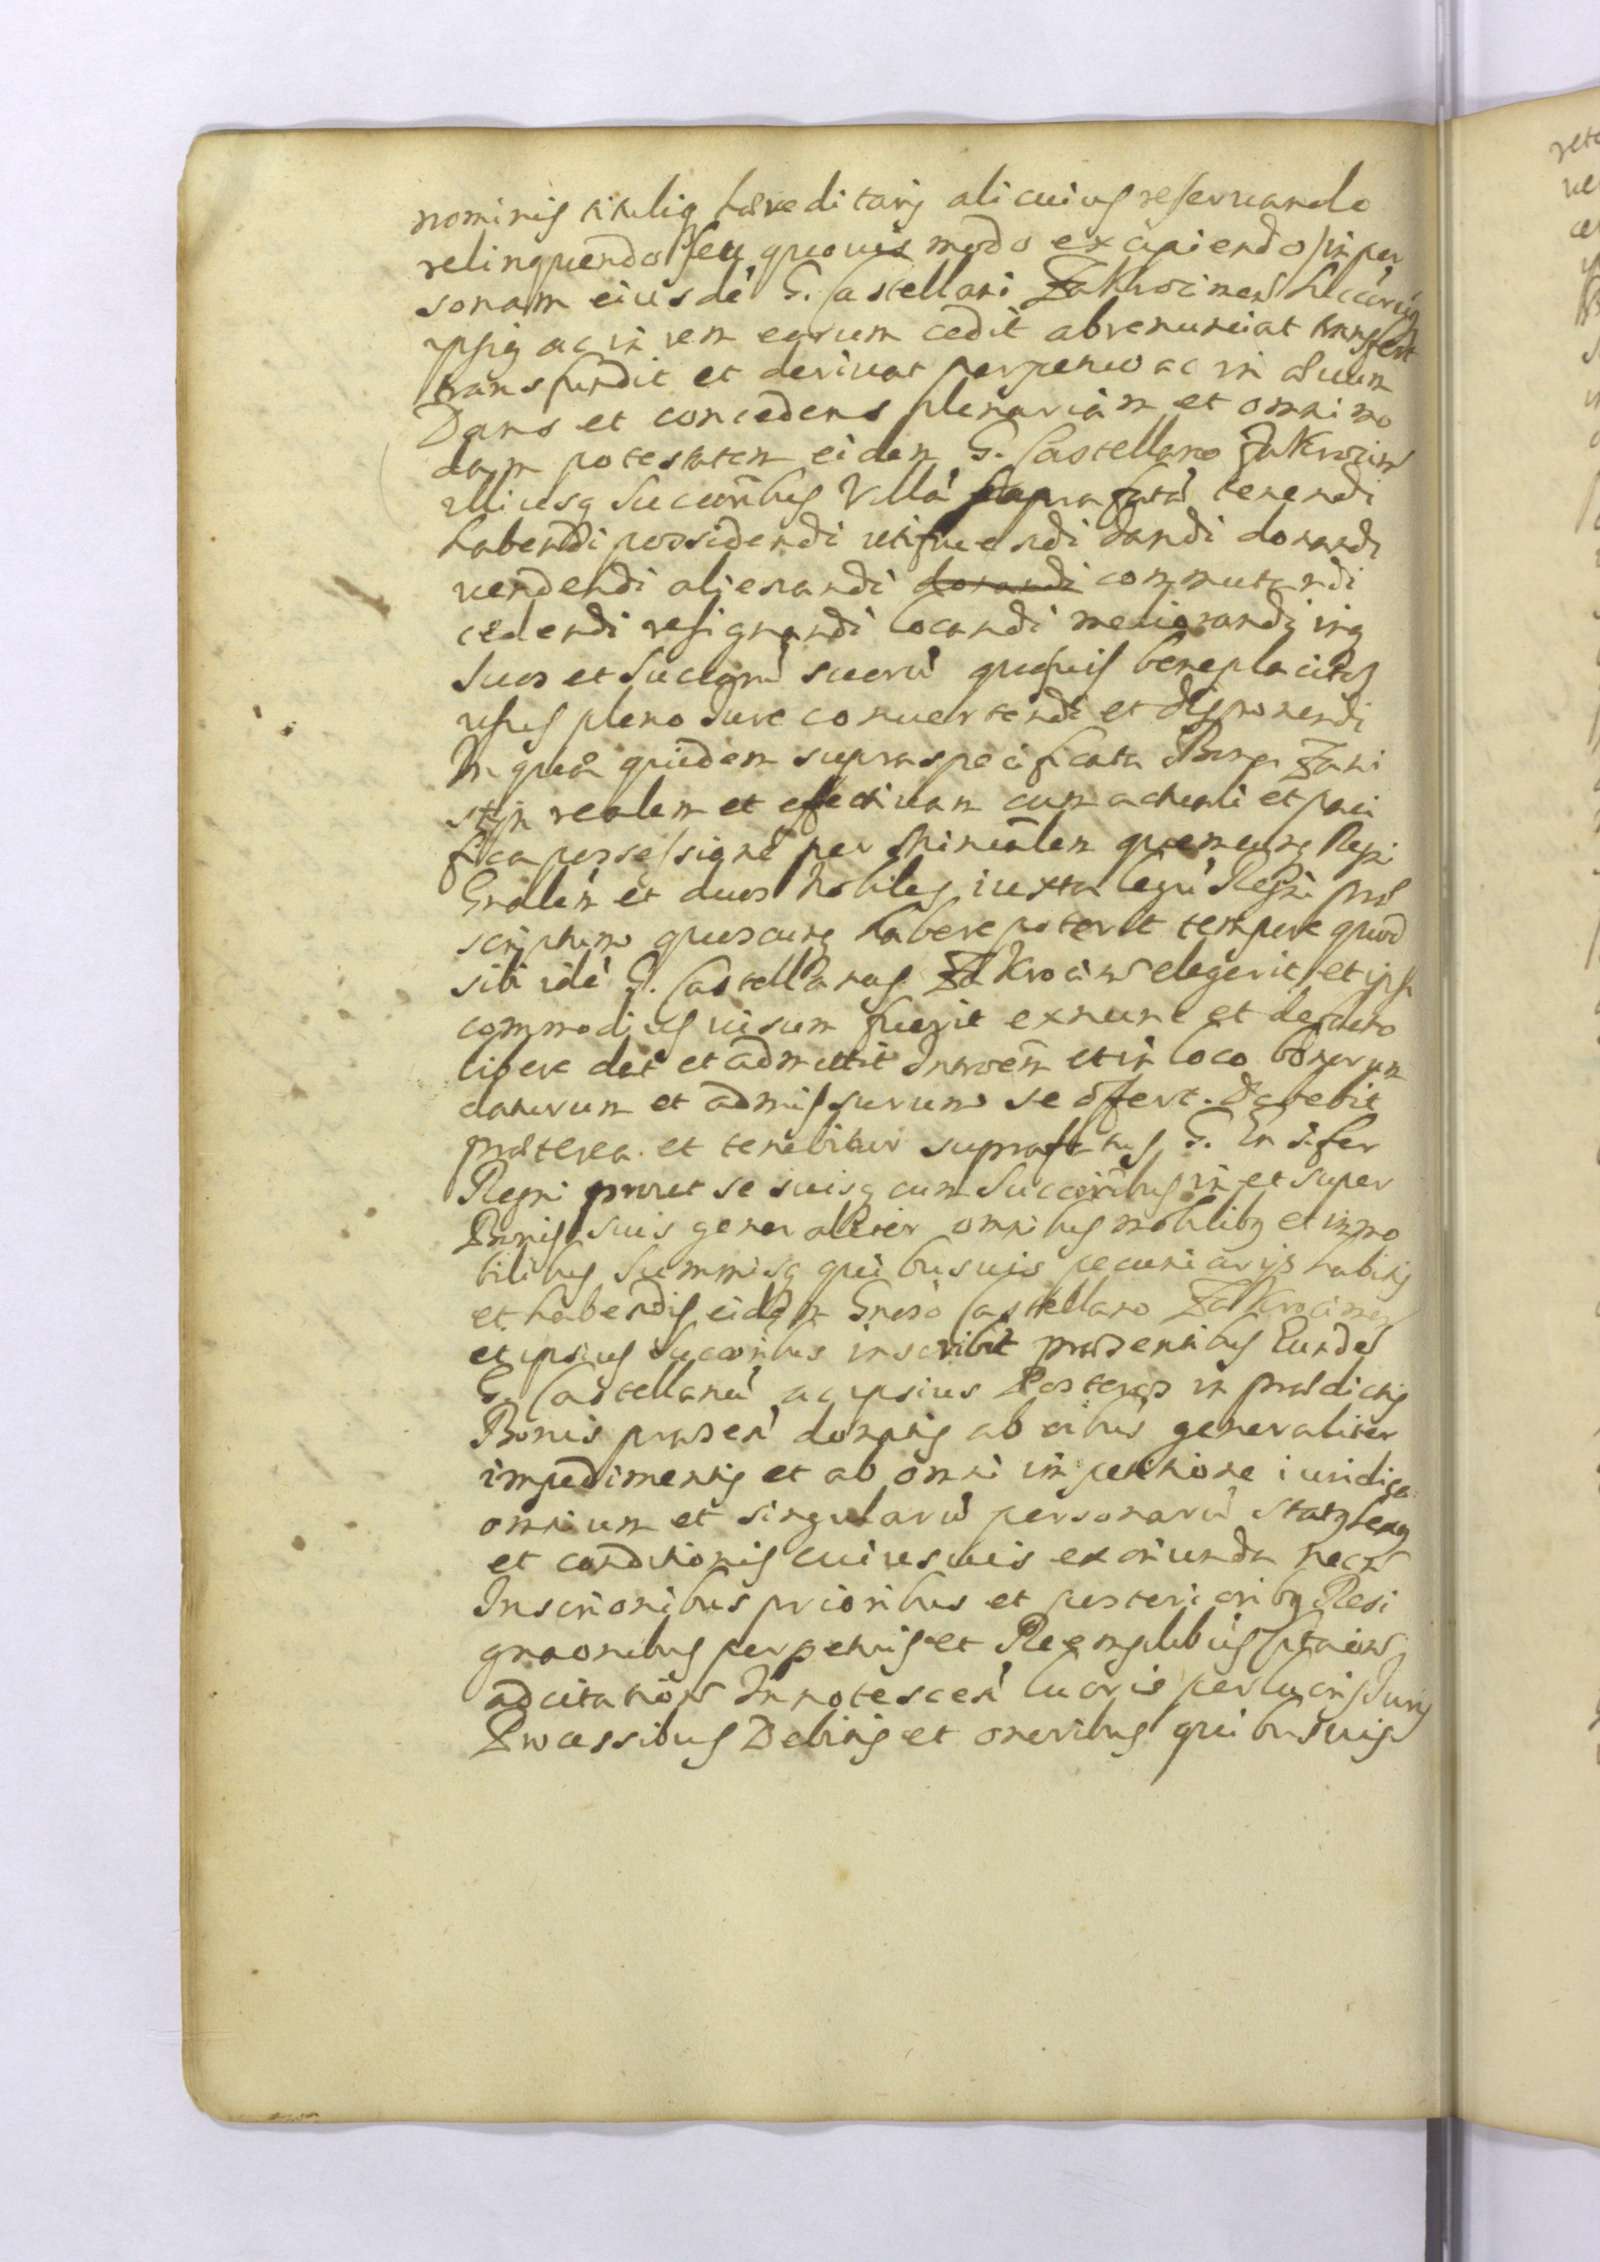 nominis tituliq haereditarij alicuius reseruando
relinquendo seu quouis modo excipiendo in per
sonam eiusdē G. Castellani Zakrocimen Succorūq
ipsiq ac in rem eorum cedit abrenunciat transfert
transfundit et deriuat perpetuo ac in aeuum
Dans et concedens plenariam et omnimo
dam potestatem eidem G. Castellano Zakrocim
illiusq Succoribus Villā suprafatā tenendi
habendi possidendi utifruendi dandi donandi
vendendi alienandi donandi commutandi
cedendi resignandi locandi meliorandi inq
suos et Succorū suorū quosuis beneplacitos
usus pleno Jure conuertendi et disponendi
In quā quidem supraspecificata Bona
realem et effectiuam cum actuali et paci
fica possessione per Ministālem quemcunq Regni
Gnalem et duos Nobiles iuxta legū Regni prae
scriptum quoscunq habere poterit tempore quod
sibi idē G. Castellanus Zakrocims elegerit et ipsi
commodius uisum fuerit exnunc et defacto
libere dat et admittit Intrōem et in loco bonorum
daturum et admissurum se offert. Debebit
praeterea et tenebitur suprafatus G. Ensifer
Regni prout se suisq cum Succoribus in et super
Bonis suis generaliter omnibus mobilibq et immo
bilibus Summisq quibusuis pecuniarijs habitis
et habendis eidem Gnoso Castellano Zakrocimen
et ipsius Succoribus inscribit praesentibus Eundē
G. Castellanū ac ipsius Posteros in praedictis
Bonis praesen donatis ab oibus generaliter
impedimentis et ab omni impetitione iuridica
omnium et singularū personarū Status sexus
et conditionis cuiusuis exoriunda necn
Inscrionibus prioribus et posterioribq Resi
gnaonibus perpetuis et Reemptibus
adcitations Innotescen lucris perlucris Juris
Processibus Debitis et oneribus quibusuis